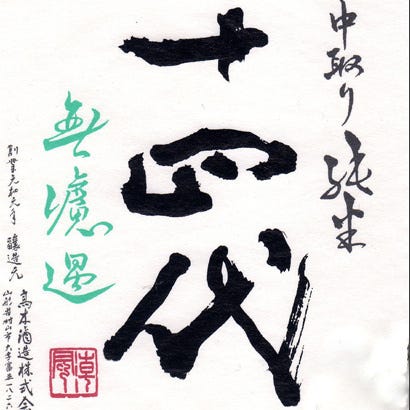 中取り純米
十四代
無濾過
創業元和元年 醸造元
高木酒造株式会
山形県村山市大字富並一八二六